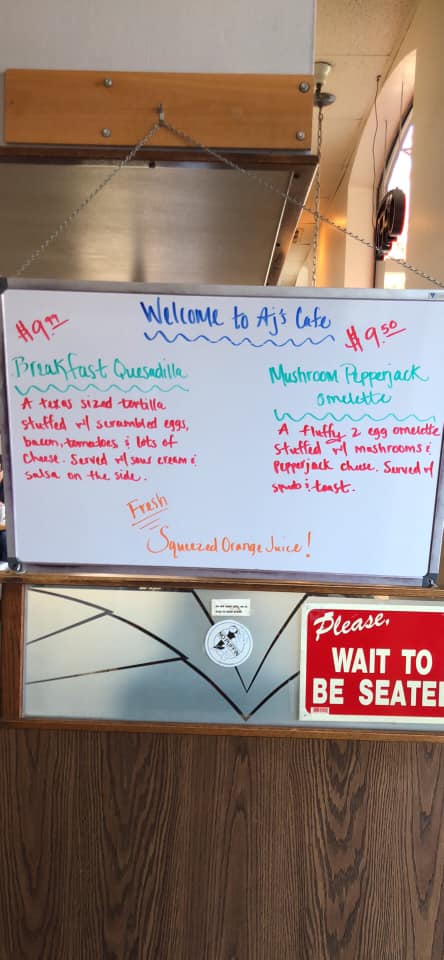 Welcome to Aj's Cafe
$9.99
Breakfast Quesadilla
A texas sized tortilla
stuffed w/ scrambled eggs,
bacon, tomatoes & lots of
cheese. Served w/ sour cream &
salsa on the side.
$9.50
Mushroom Pepperjack
omelette
A fluffy 2 egg omelette
stuffed w/ mushrooms &
pepperjack cheese. Served w/
spuds & toast.
Fresh
Squeezed Orange Juice!
Please,
WAIT TO
BE SEATE